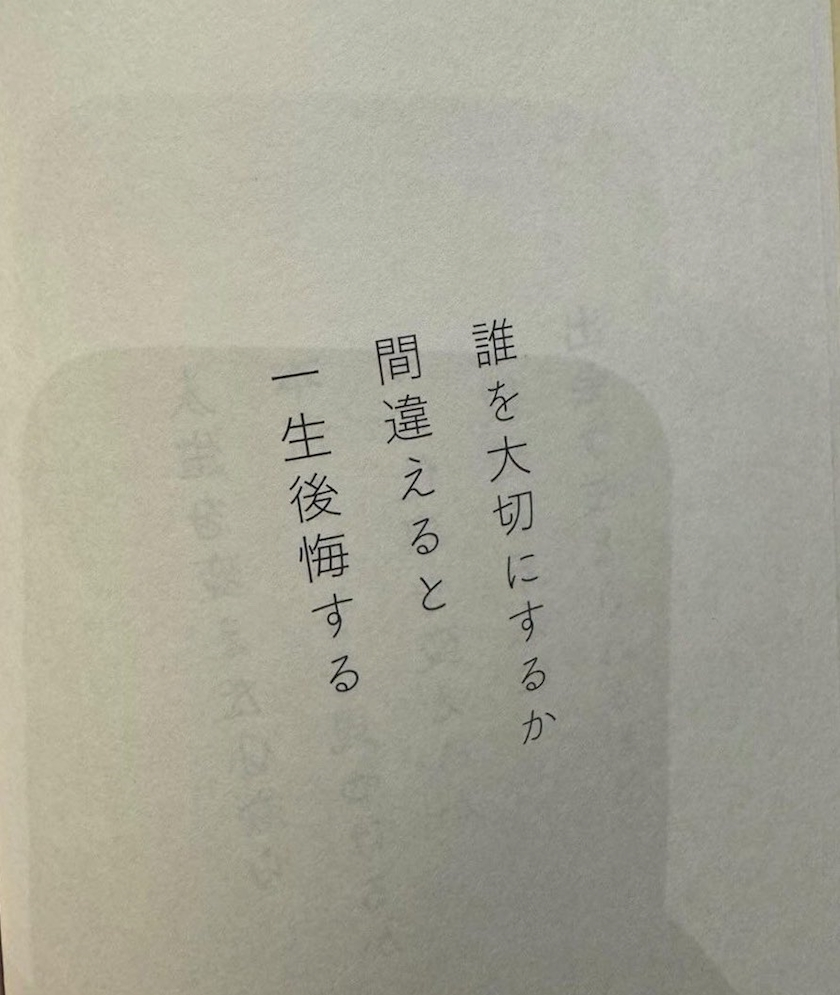 誰を大切にするか
間違えると
一生後悔する